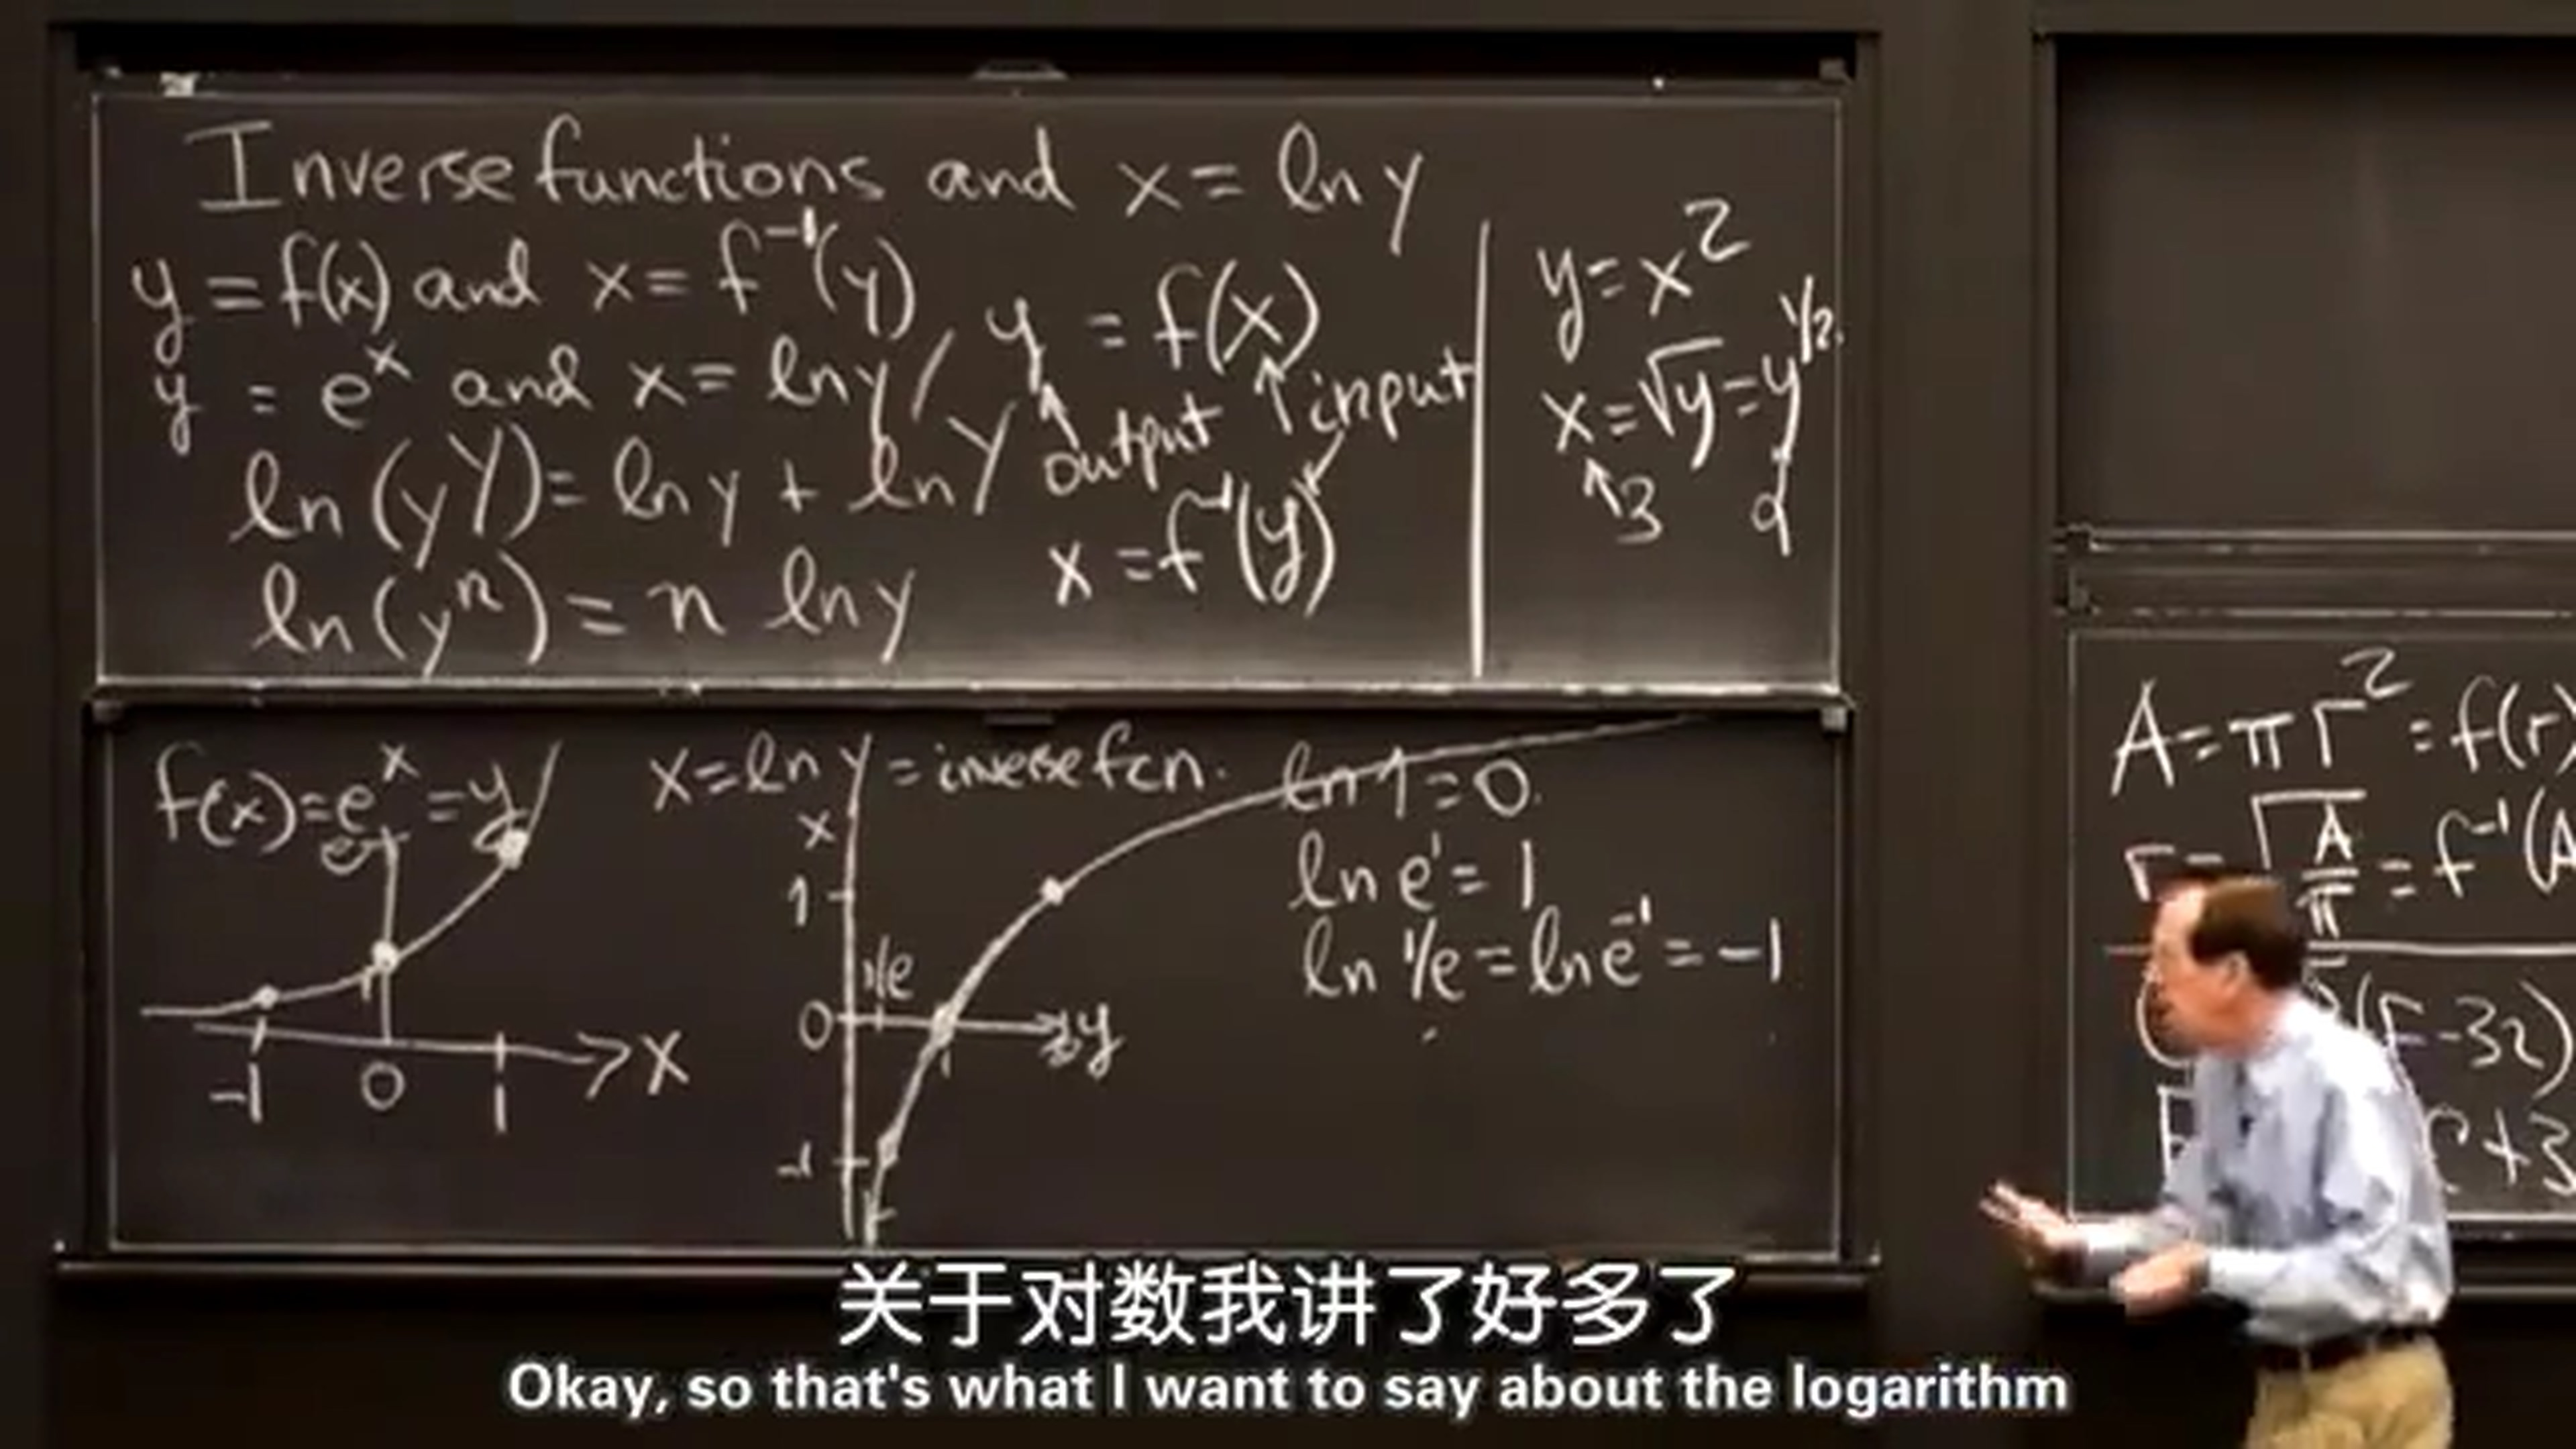 Inverse functions and x = ln y
y = f(x) and x = f⁻¹(y)
y = eˣ and x = ln y
ln (yY) = ln y + ln Y
ln (yⁿ) = n ln y
y = f(x)
output
input
x = f⁻¹(y)
y = x²
x = √y = y^1/2
3
9
f(x) = eˣ = y
e
1
-1 0 1 > x
x = ln y = inverse fcn.
x
1
1/e
0
1
y
-1
ln 1 = 0
ln e¹ = 1
ln 1/e = ln e⁻¹ = -1
A = πr² = f(r)
r = √A/π = f⁻¹(A
(F-32)
C+3
关于对数我讲了好多了
Okay, so that's what I want to say about the logarithm